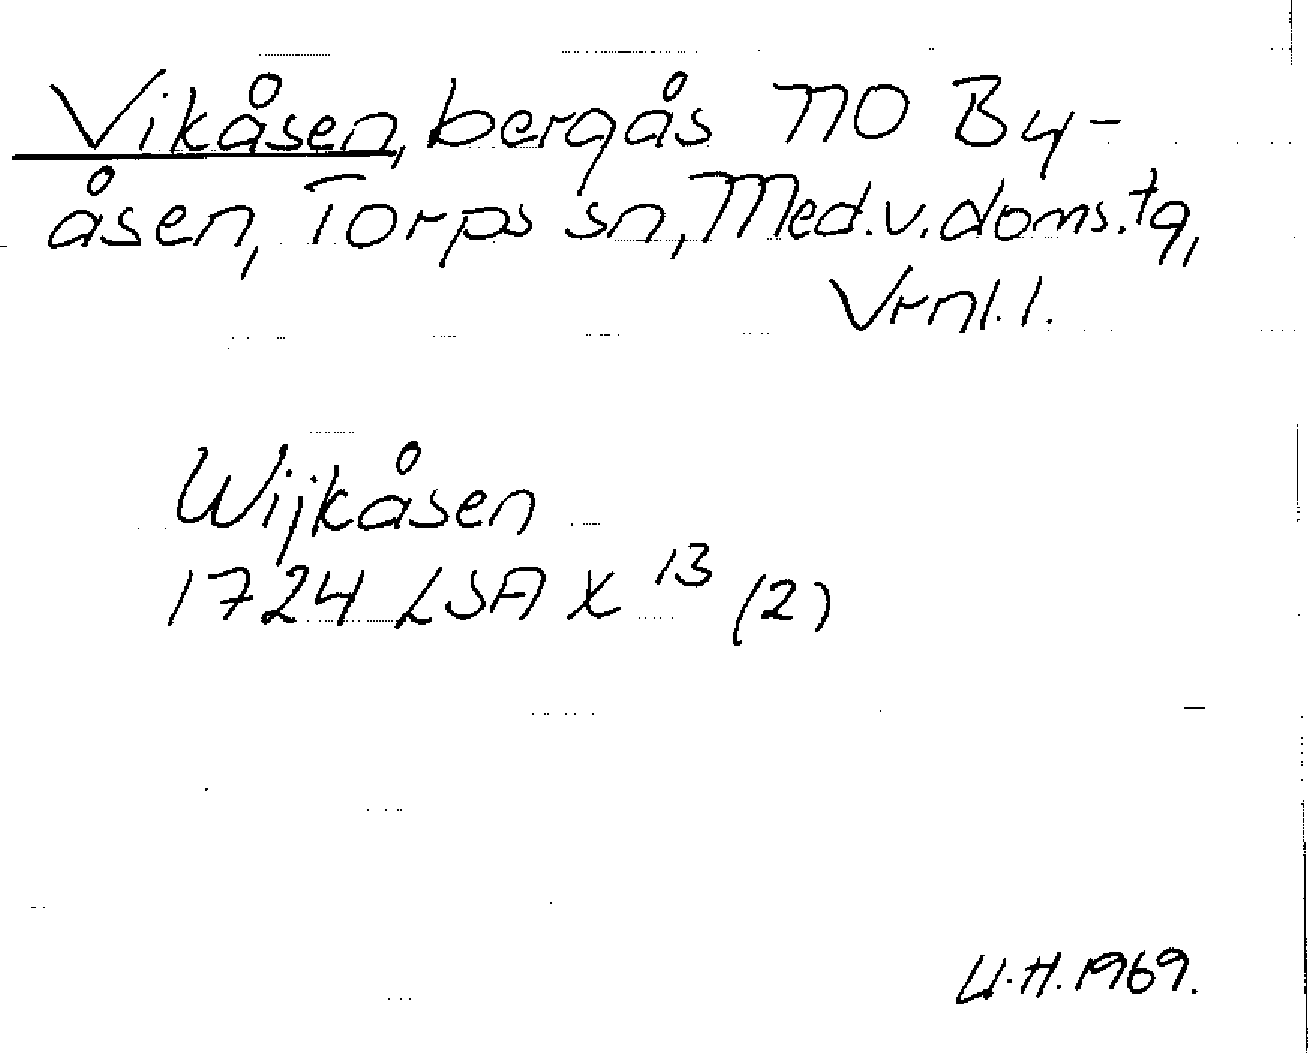 Vikåsen, bergås NO By-
åsen, Torps sn, Med.v.doms.tg,
Vrnl.l.
Wijkåsen
1724 LSA X 13 (2)
U.H. 1969.